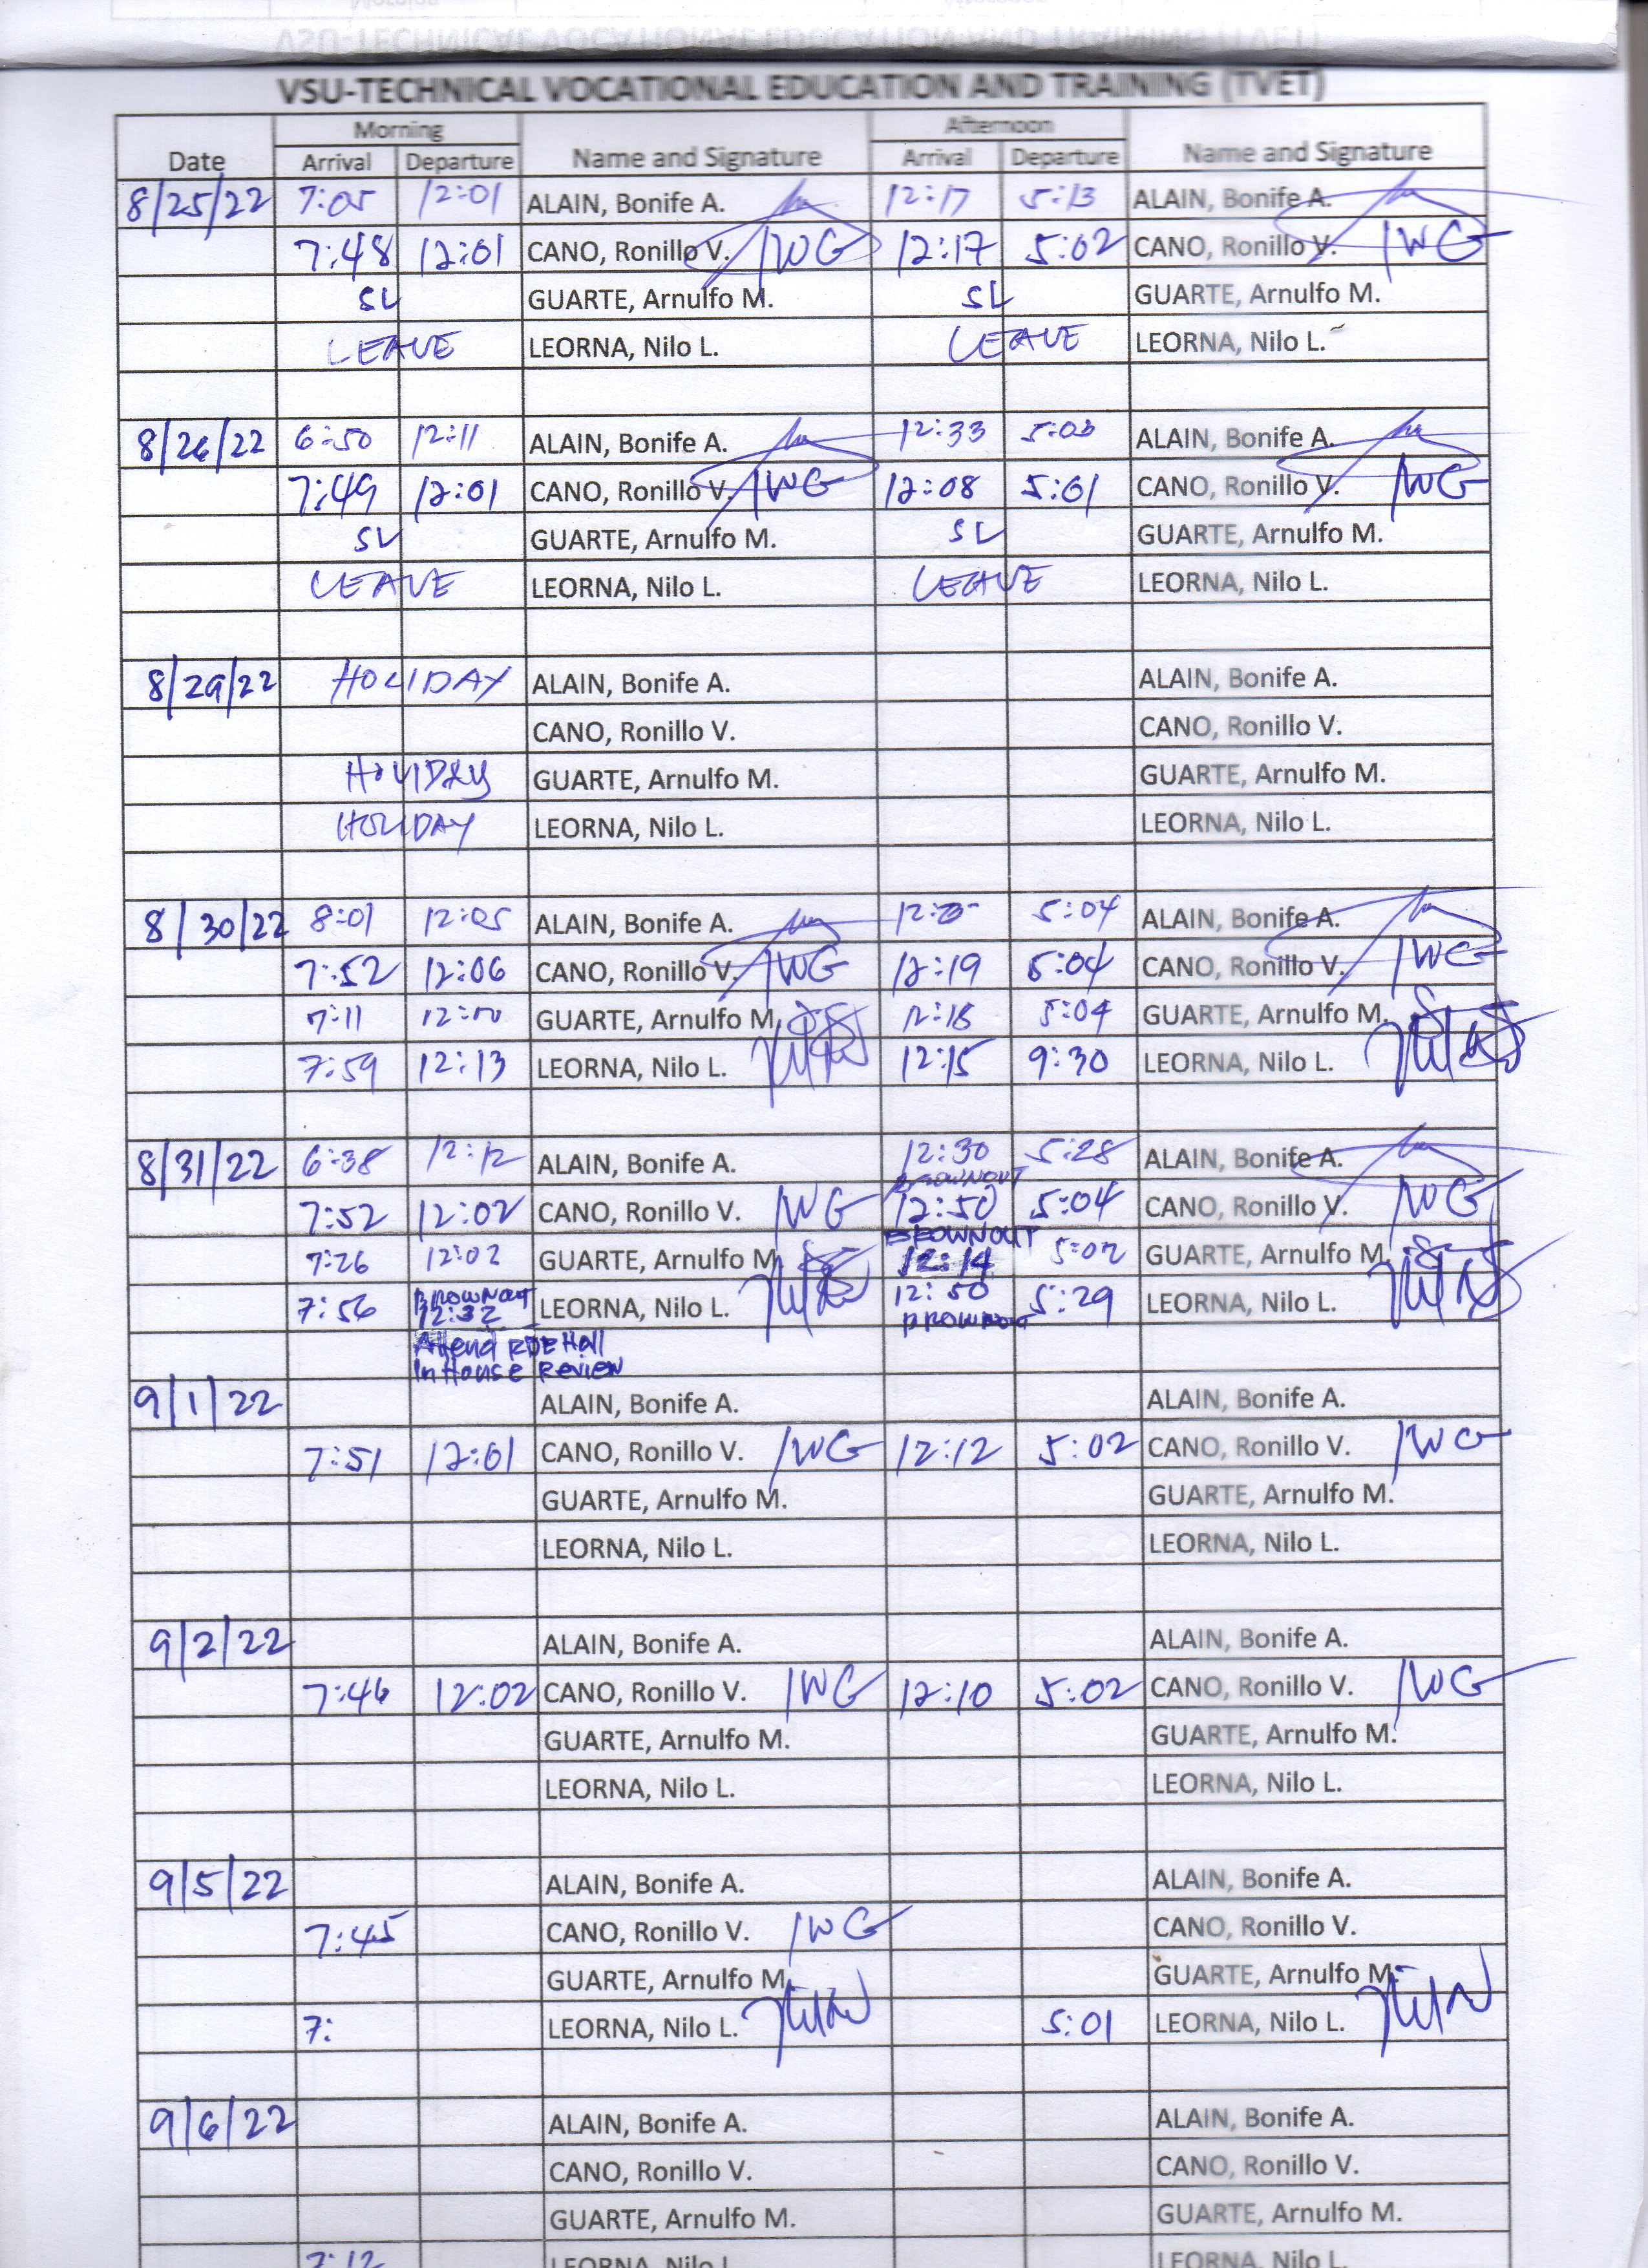 VSU-TECHNICAL VOCATIONAL EDUCATION AND TRAINING (TVET)
Date Morning Name and Signature Afternoon Name and Signature
Arrival Departure Arrival Departure
8/25/22 7:05 12:01 ALAIN, Bonife A. 12:17 5:13 ALAIN, Bonife A.
7:48 12:01 CANO, Ronillo V. 12:17 5:02 CANO, Ronillo V.
SL GUARTE, Arnulfo M. SL GUARTE, Arnulfo M.
LEAVE LEORNA, Nilo L. LEAVE LEORNA, Nilo L.
8/26/22 6:50 12:11 ALAIN, Bonife A. 12:33 ALAIN, Bonife A.
7:49 12:01 CANO, Ronillo V. 12:08 5:01 CANO, Ronillo V.
SL GUARTE, Arnulfo M. SL GUARTE, Arnulfo M.
LEAVE LEORNA, Nilo L. LEAVE LEORNA, Nilo L.
8/29/22 HOLIDAY ALAIN, Bonife A. ALAIN, Bonife A.
CANO, Ronillo V. CANO, Ronillo V.
HOLIDAY GUARTE, Arnulfo M. GUARTE, Arnulfo M.
HOLIDAY LEORNA, Nilo L. LEORNA, Nilo L.
8/30/22 8:01 12:05 ALAIN, Bonife A. 5:04 ALAIN, Bonife A.
7:52 12:06 CANO, Ronillo V. 12:19 5:04 CANO, Ronillo V.
7:11 GUARTE, Arnulfo M. 5:04 GUARTE, Arnulfo M.
7:59 12:13 LEORNA, Nilo L. 12:15 9:30 LEORNA, Nilo L.
8/31/22 6:38 12:12 ALAIN, Bonife A. 12:30 5:28 ALAIN, Bonife A.
BROWNOUT
7:52 12:02 CANO, Ronillo V. 12:50 5:04 CANO, Ronillo V.
BROWNOUT
7:26 12:02 GUARTE, Arnulfo M. 12:14 5:02 GUARTE, Arnulfo M.
BROWNOUT
7:56 12:32 LEORNA, Nilo L. 12:50 5:29 LEORNA, Nilo L.
BROWNOUT
Attend RDE Hall
In House Review
9/1/22 ALAIN, Bonife A. ALAIN, Bonife A.
7:51 12:01 CANO, Ronillo V. 12:12 5:02 CANO, Ronillo V.
GUARTE, Arnulfo M. GUARTE, Arnulfo M.
LEORNA, Nilo L. LEORNA, Nilo L.
9/2/22 ALAIN, Bonife A. ALAIN, Bonife A.
7:46 12:02 CANO, Ronillo V. 12:10 5:02 CANO, Ronillo V.
GUARTE, Arnulfo M. GUARTE, Arnulfo M.
LEORNA, Nilo L. LEORNA, Nilo L.
9/5/22 ALAIN, Bonife A. ALAIN, Bonife A.
7:45 CANO, Ronillo V. CANO, Ronillo V.
GUARTE, Arnulfo M. GUARTE, Arnulfo M.
7: LEORNA, Nilo L. 5:01 LEORNA, Nilo L.
9/6/22 ALAIN, Bonife A. ALAIN, Bonife A.
CANO, Ronillo V. CANO, Ronillo V.
GUARTE, Arnulfo M. GUARTE, Arnulfo M.
7:12 LEORNA, Nilo L. LEORNA, Nilo L.